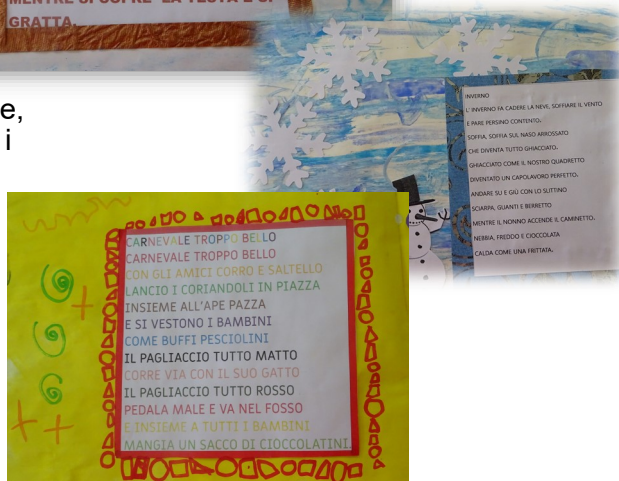 MENTRE SI SCOPRE LA TESTA E SI
GRATTA.
e,
i
INVERNO
L' INVERNO FA CADERE LA NEVE, SOFFIARE IL VENTO
E PARE PERSINO CONTENTO.
SOFFIA, SOFFIA SUL NASO ARROSSATO
CHE DIVENTA TUTTO GHIACCIATO.
GHIACCIATO COME IL NOSTRO QUADRETTO
DIVENTATO UN CAPOLAVORO PERFETTO.
ANDARE SU E GIÙ CON LO SLITTINO
SCIARPA, GUANTI E BERRETTO
MENTRE IL NONNO ACCENDE IL CAMINETTO.
NEBBIA, FREDDO E CIOCCOLATA
CALDA COME UNA FRITTATA.
CARNEVALE TROPPO BELLO
CARNEVALE TROPPO BELLO
CON GLI AMICI CORRO E SALTELLO
LANCIO I CORIANDOLI IN PIAZZA
INSIEME ALL'APE PAZZA
E SI VESTONO I BAMBINI
COME BUFFI PESCIOLINI
IL PAGLIACCIO TUTTO MATTO
CORRE VIA CON IL SUO GATTO
IL PAGLIACCIO TUTTO ROSSO
PEDALA MALE E VA NEL FOSSO
E INSIEME A TUTTI I BAMBINI
MANGIA UN SACCO DI CIOCCOLATINI.